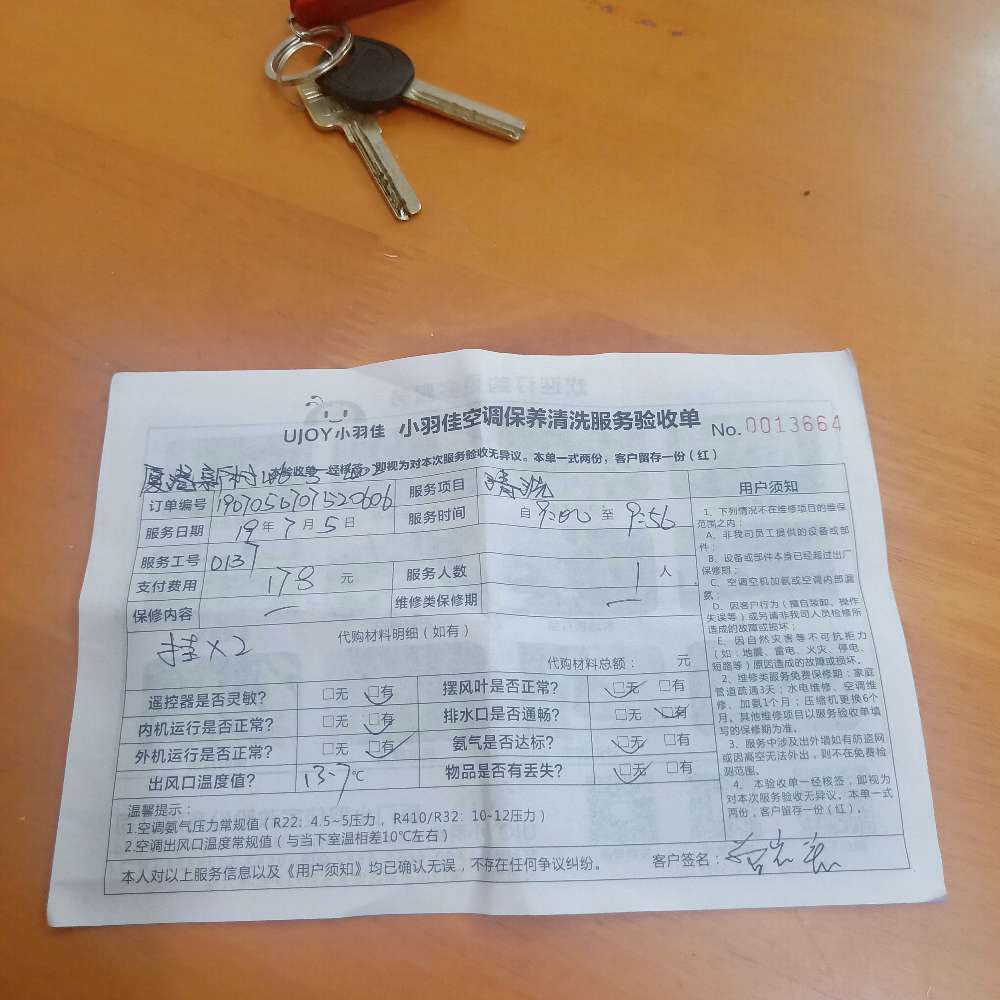 UJOY小羽佳 小羽佳空调保养清洗服务验收单 No.0013664
本验收单一经核签，即视为对本次服务验收无异议。本单一式两份，客户留存一份（红）
夏港新村
订单编号 服务项目 清洗
服务日期 19年7月5日 服务时间 自9:00至9:56
服务工号 0137
支付费用 178元 服务人数 1人
保修内容 一 维修类保修期 一
挂x2 代购材料明细（如有）
代购材料总额： 元
遥控器是否灵敏? □无 □有 摆风叶是否正常? □无 □有
内机运行是否正常? □无 □有 排水口是否通畅? □无 □有
外机运行是否正常? □无 □有 氨气是否达标? □无 □有
出风口温度值? 13.7℃ 物品是否有丢失? □无 □有
温馨提示：
1.空调氨气压力常规值（R22：4.5~5压力，R410/R32：10-12压力）
2.空调出风口温度常规值（与当下室温相差10℃左右）
本人对以上服务信息以及《用户须知》均已确认无误，不存在任何争议纠纷。 客户签名：
用户须知
1、下列情况不在维修项目的维保
范围之内：
A、非我司员工提供的设备或部
件；
B、设备或部件本身已经超过出厂
保修期；
C、空调空机加氨或空调内部漏
氨；
D、因客户行为（擅自装卸、操作
失误等）或另请非我司人员检修所
造成的故障或损坏；
E、因自然灾害等不可抗拒力
（如：地震、雷电、火灾、停电、
短路等）原因造成的故障或损坏。
2、维修类服务免费保修期：家庭
管道疏通3天；水电维修、空调维
修、加氨1个月；压缩机更换6个
月。其他维修项目以服务验收单填
写的保修期为准。
3、服务中涉及出外墙如有防盗网
或因高空无法外出，则不在免费检
测范围。
4、本验收单一经核签，即视为
对本次服务验收无异议。本单一式
两份，客户留存一份（红）。